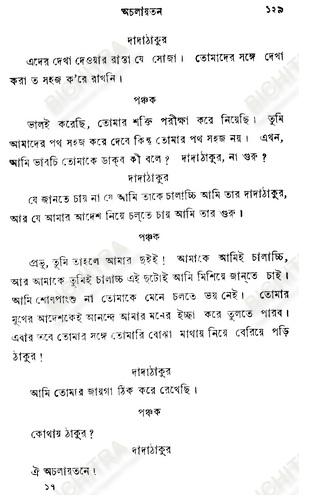 অচলায়তন ১২৯
দাদাঠাকুর
এদের দেখা দেওয়ার রাস্তা যে সোজা। তোমাদের সঙ্গে দেখা
করা ত সহজ ক'রে রাখনি।
পঞ্চক
ভালই করেছি, তোমার শক্তি পরীক্ষা করে নিয়েছি। তুমি
আমাদের পথ সহজ করে দেবে কিন্তু তোমার পথ সহজ নয়। এখন,
আমি ভাবচি তোমাকে ডাক্‌ব কী বলে? দাদাঠাকুর, না গুরু?
দাদাঠাকুর
যে জানতে চায় না যে আমি তাকে চালাচ্চি আমি তার দাদাঠাকুর,
আর যে আমার আদেশ নিয়ে চল্‌তে চায় আমি তার গুরু।
পঞ্চক
প্রভু, তুমি তাহলে আমার দুইই! আমাকে আমিই চালাচ্চি,
আর আমাকে তুমিই চালাচ্চ এই দুটোই আমি মিশিয়ে জান্‌তে চাই।
আমি শোণপাংশু না তোমাকে মেনে চলতে ভয় নেই। তোমার
মুখের আদেশকেই আনন্দে আমার মনের ইচ্ছা করে তুলতে পারব।
এবার তবে তোমার সঙ্গে তোমারি বোঝা মাথায় নিয়ে বেরিয়ে পড়ি
ঠাকুর!
দাদাঠাকুর
আমি তোমার জায়গা ঠিক করে রেখেছি।
পঞ্চক
কোথায় ঠাকুর?
দাদাঠাকুর
ঐ অচলায়তনে।
১৭
BICHITRA